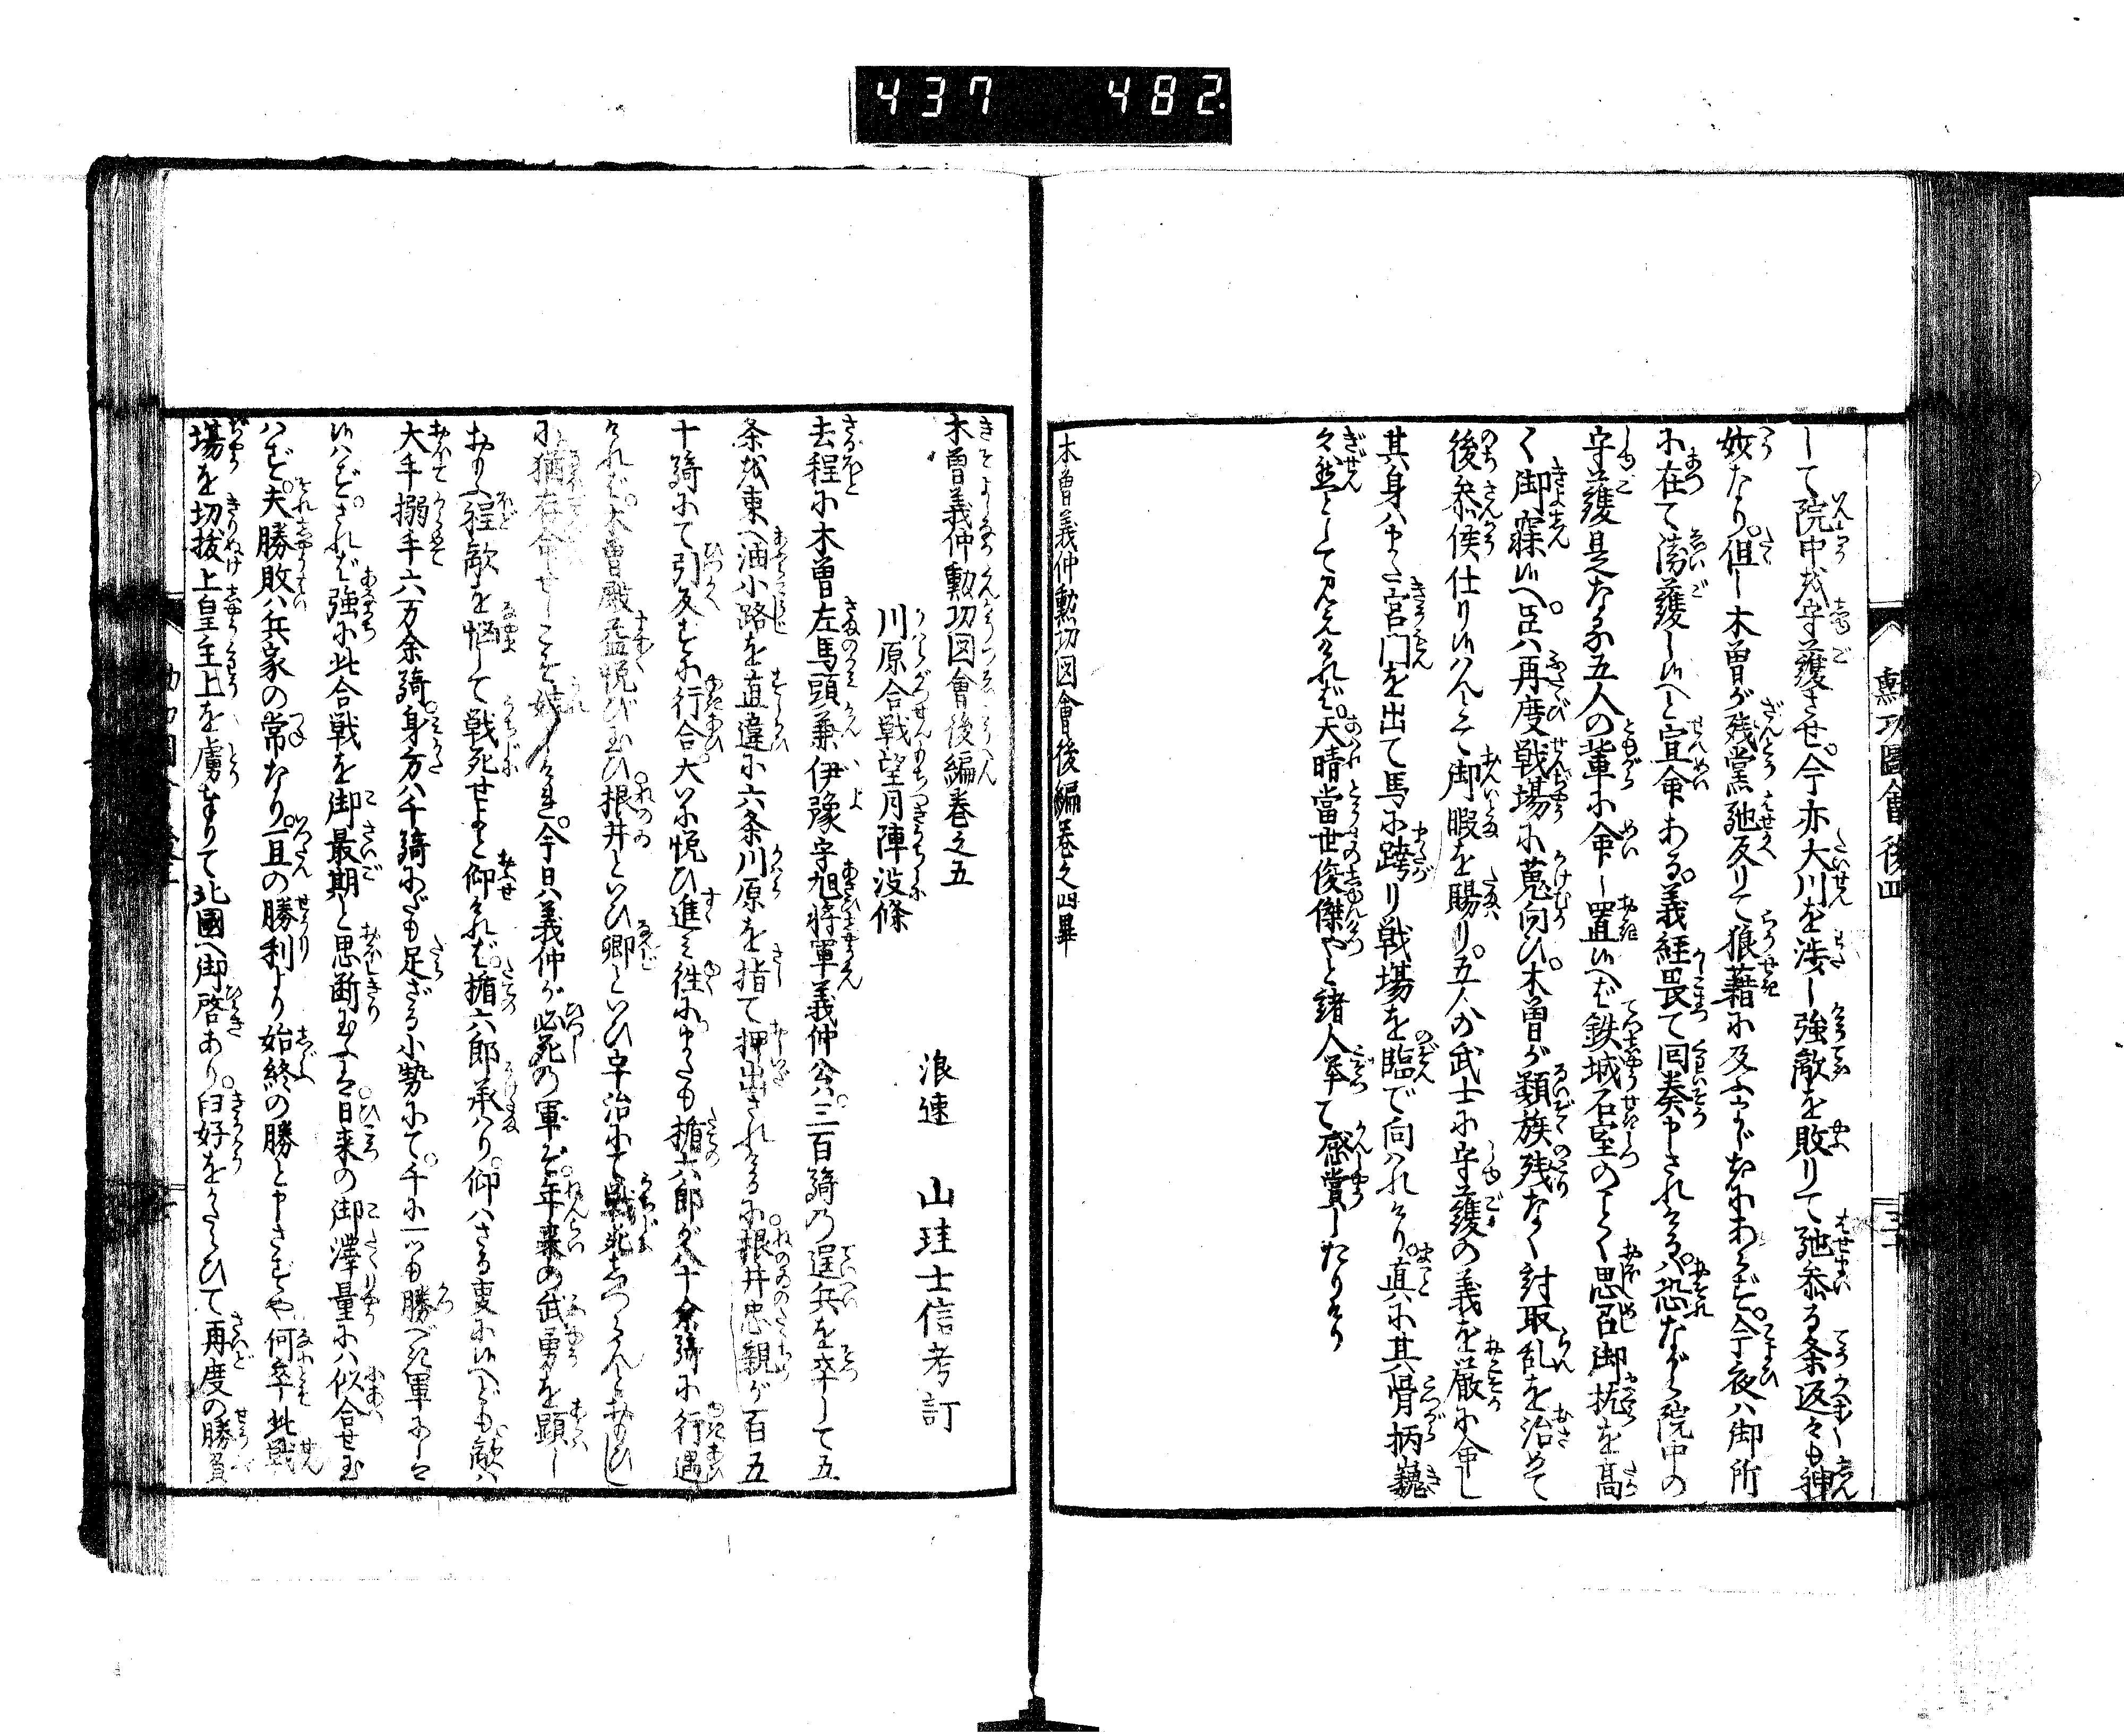 437 482.
勲功圖會後四
して院中を守護させ。今亦大川を渉し強敵を敗りて馳参る条返々も神
妙なり。但し木曽が残黨馳及りて狼藉に及ふまじきにあらず。今夜ハ御所
に在て守護し候へと宣命ある。義経畏て回奏申されけるハ。恐ながら院中の
守護是なる五人の輩に命し置候へバ鉄城石室のごとく思召御枕を高
く御寝候へ。臣ハ再度戦場に蒐向ひ。木曽が類族残なく討取乱を治めて
後参候仕り候ハんとて御暇を賜り。五人の武士に守護の義を厳に命し
其身ハまた宮門を出て馬に跨り戦場を臨で向ハれけり。真に其骨柄巍
々然として見えけれバ。天晴當世俊傑やと諸人挙て感賞したりけり
木曽義仲勲功図會後編巻之四畢
木曽義仲勲功図會後編巻之五
浪速 山珪士信考訂
川原合戦望月陣没條
去程に木曽左馬頭兼伊豫守旭将軍義仲公ハ。三百騎の逞兵を卒して五
条を東へ油小路を直違に六条川原を指て押出されけるに。根井忠親が百五
十騎にて引及すに行合。大いに悦び進ミ往に。またも楯六郎が八十余騎に行遇
けれバ。木曽殿益悦び玉ひ。根井といひ卿といひ宇治にて戦死しつらんとおもひし
に。猶存命せしこそ嬉しけれ。今日ハ義仲が必死の軍ぞ。年来の武勇を顕し
おもふ程敵を悩して戦死せよと仰けれバ。楯六郎承ハり。仰ハさる事に候へども敵ハ
大手搦手六万余騎。身方ハ千騎にだも足ざる小勢にて。千に一ツも勝べき軍にしも
候ハず。されバ強に此合戦を御最期と思断玉ふは日来の御澤量にハ似合せ玉
ハず。夫勝敗ハ兵家の常なり。一旦の勝利より始終の勝と申さずや。何卒此戦
場を切抜上皇主上を虜まゐりて北國へ御啓あり。旧好をかたらひて再度の勝負